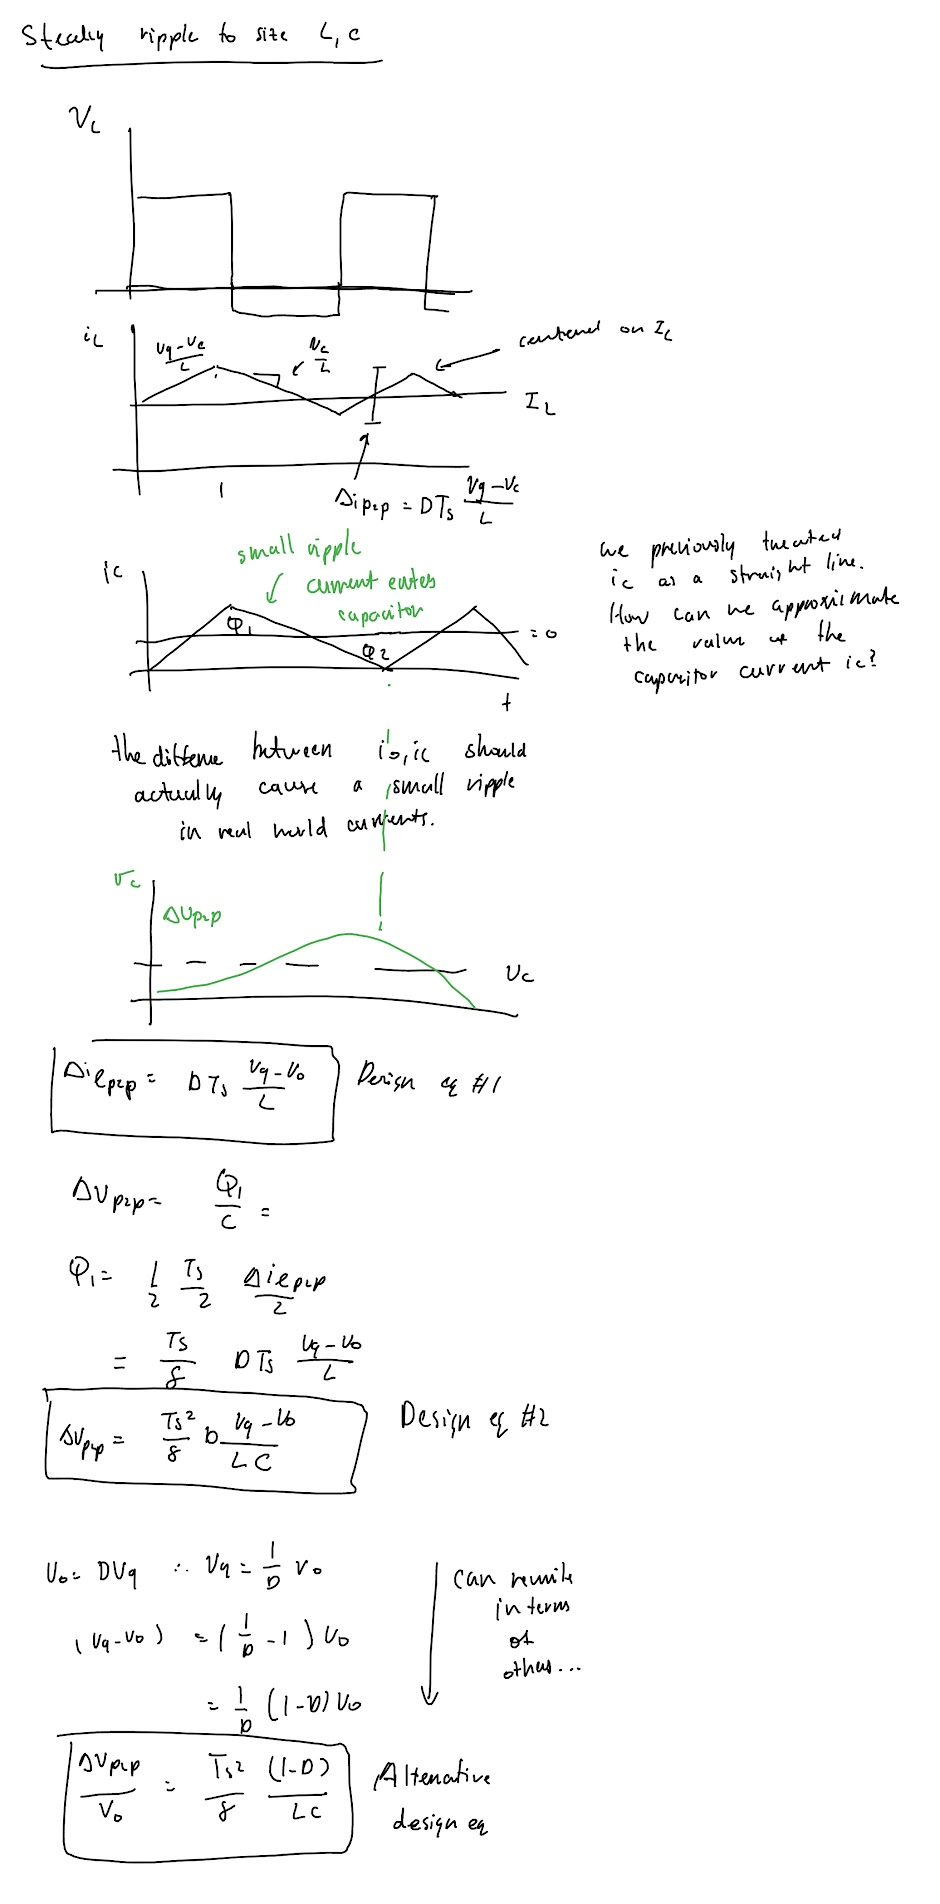 Steady ripple to size L, C
V_L
i_L
Vg-Vc / L
Vc / L
centered on I_L
I_L
Δi p2p = DTs Vg-Vc / L
small ripple
current enters
capacitor
ic
Q1
Q2
= 0
t
we previously treated
ic as a straight line.
How can we approximate
the value of the
capacitor current ic?
the differene between io, ic should
actually cause a small ripple
in real world currents.
vc
ΔVp2p
Vc
Δiℓp2p = DTs Vg-Vo / L
Design eq #1
ΔVp2p = Q1 / C =
Q1 = 1/2 Ts/2 Δiℓp2p/2
= Ts/8 DTs Vg-Vo / L
ΔVp2p = Ts²/8 D Vg-Vo / LC
Design eq #2
Vo = DVg ∴ Vg = 1/D Vo
(Vg-Vo) = (1/D - 1) Vo
= 1/D (1-D) Vo
can rewrite
in terms
of
others...
ΔVp2p / Vo = Ts²/8 (1-D) / LC
Altenative
design eq